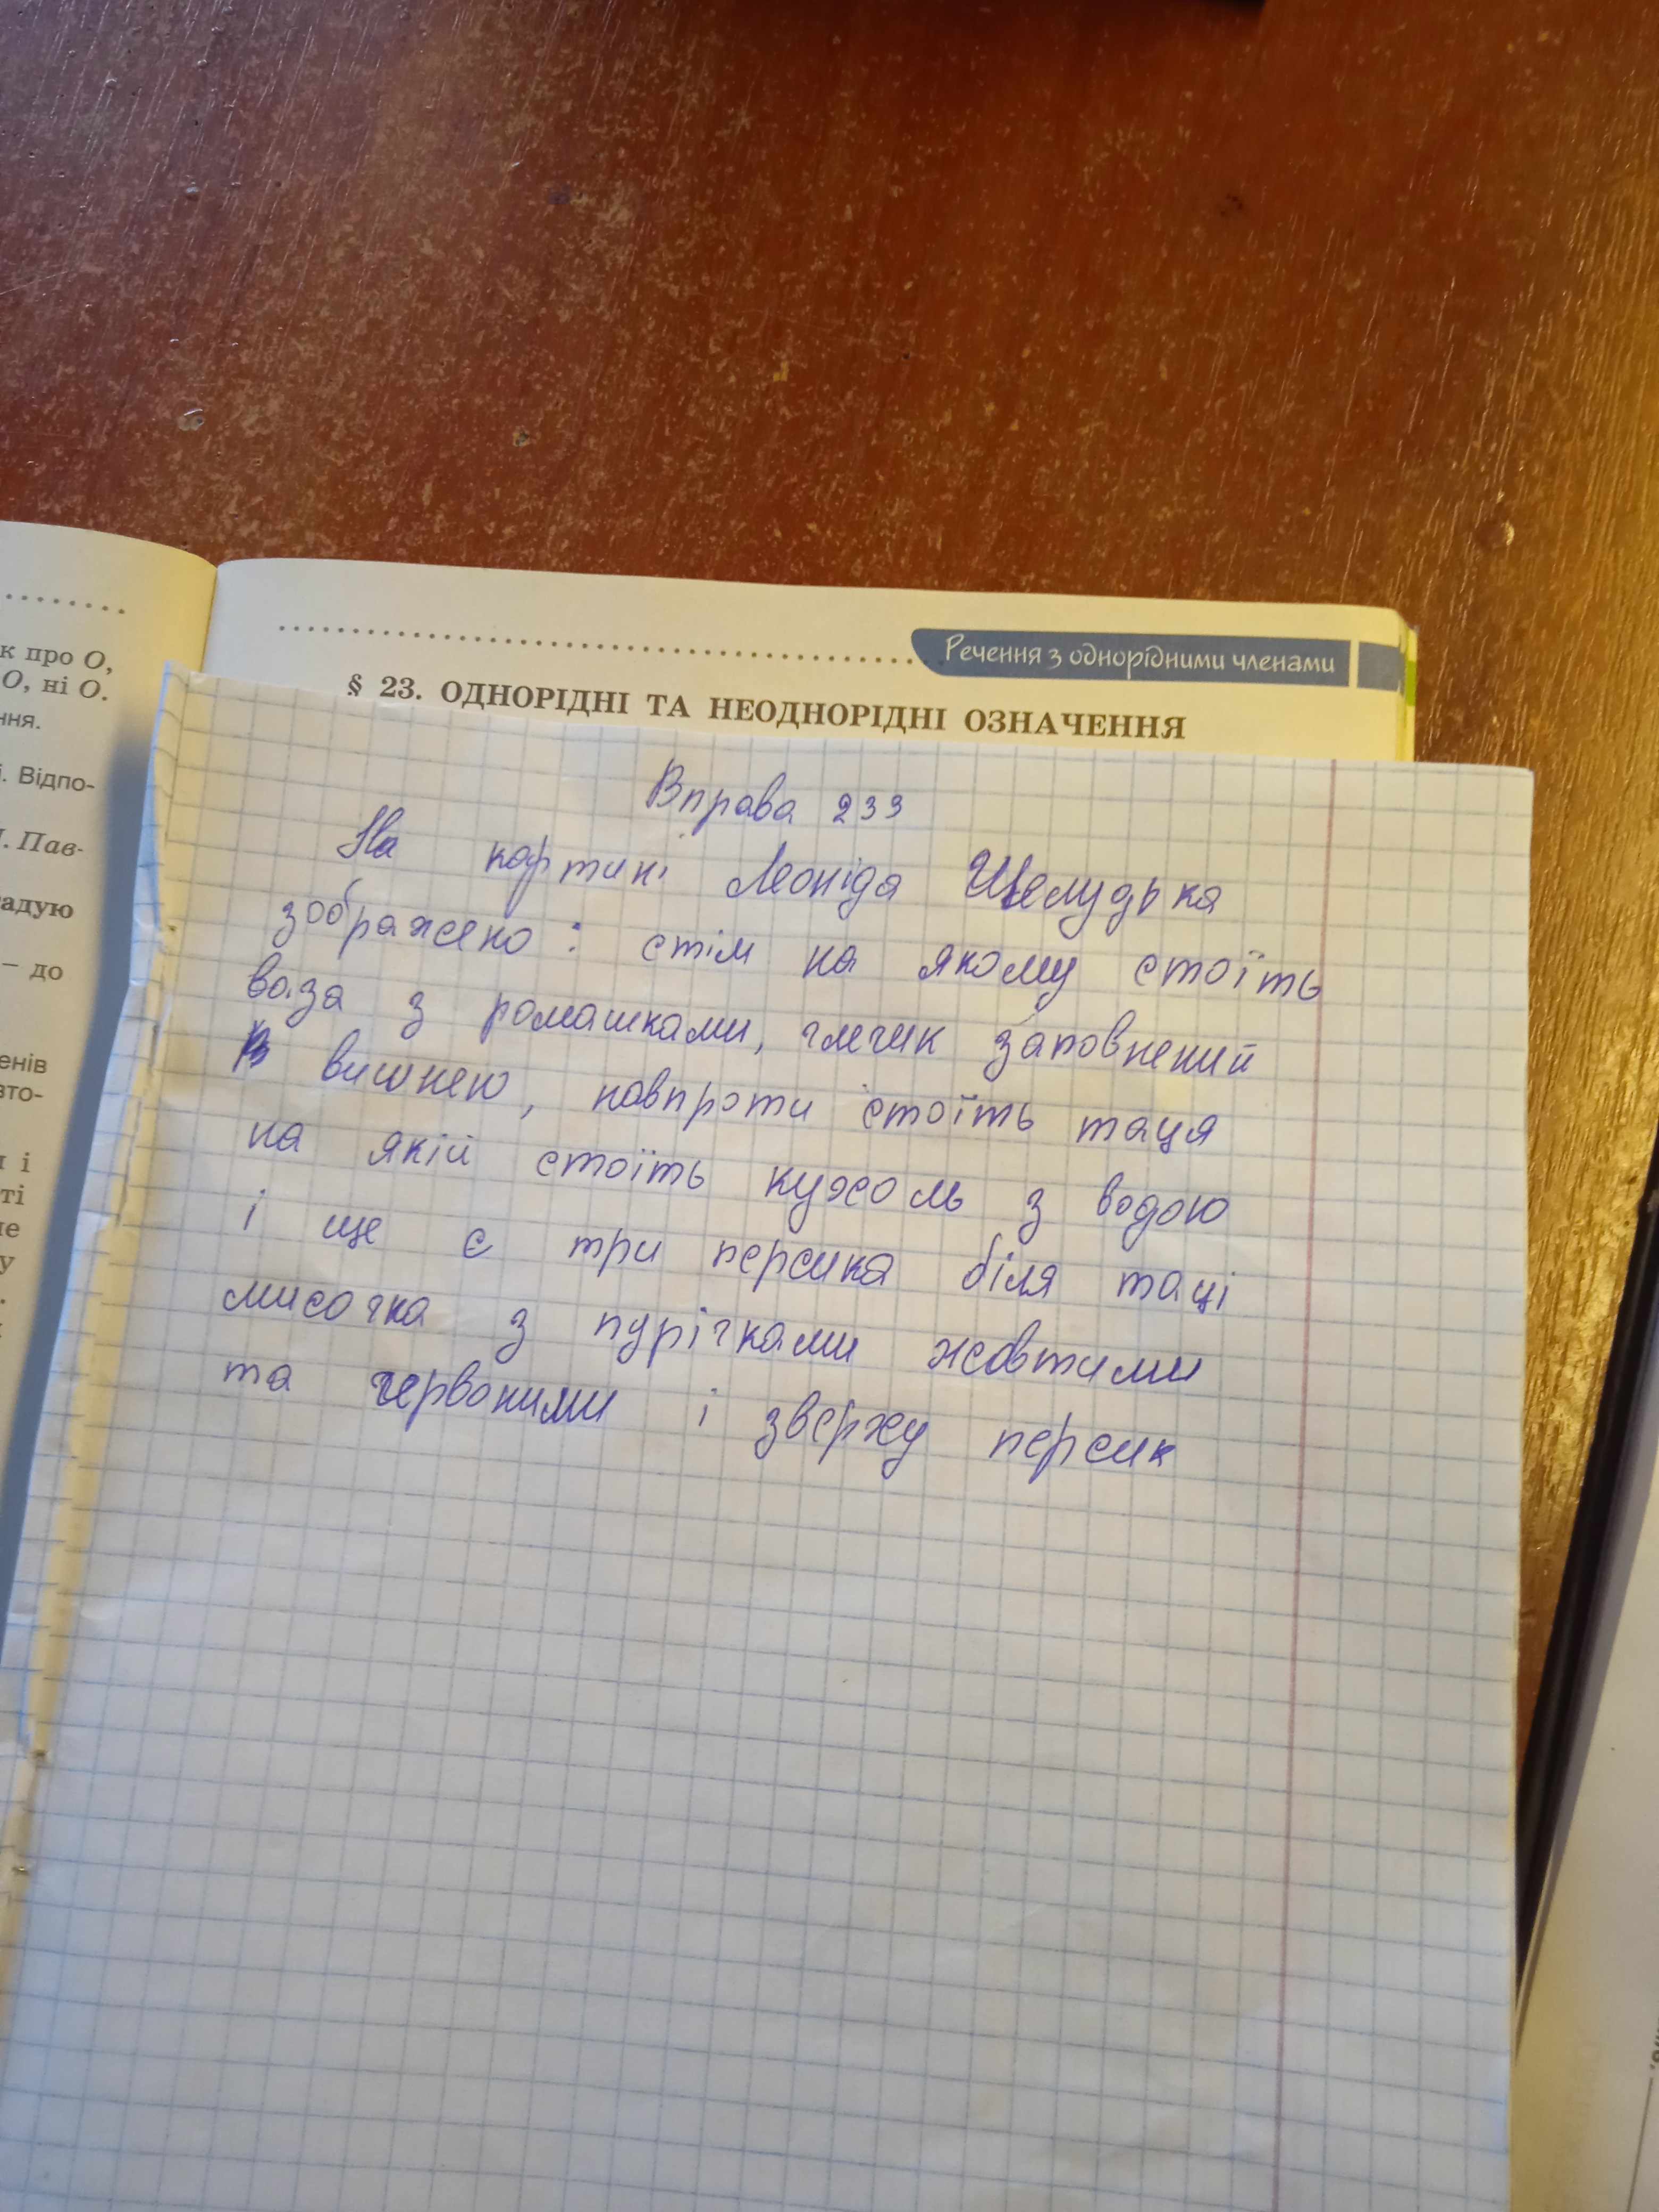 к про О,
О, ні О.
ння.
і. Відпо-
І. Пав-
адую
– до
енів
вто-
и і
ті
не
у
Речення з однорідними членами
§ 23. ОДНОРІДНІ ТА НЕОДНОРІДНІ ОЗНАЧЕННЯ
Вправа 233
На картині Леоніда Шелудька
зображено: стіл на якому стоїть
ваза з ромашками, глечик заповнений
вишнею, навпроти стоїть таця
на якій стоїть кухоль з водою
і ще є три персика біля таці
мисочка з пурічками жовтими
та червоними і зверху персик